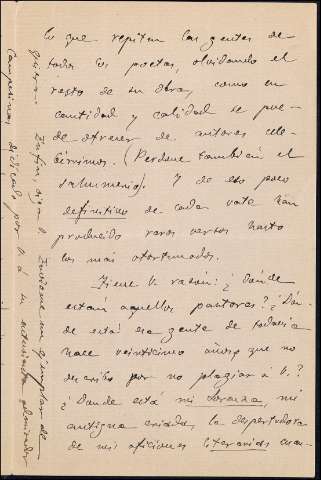 lo que repitan las gentes de
todos los poetas, olvidando el
resto de su obra, como en
cantidad y calidad se pue-
de ofrecer de autores cele-
bérrimos. (Perdone también el
sahumerio). Y de eso poco
definitivo de cada vate han
producido raros versos hasta
los más afortunados.
Tiene V. razón: ¿dónde
están aquellos pastores? ¿Dón-
de está esa gente de todavía
hace veinticinco años que no
describo por no plagiar á V.?
¿Donde está mi Lorenza, mi
antigua criada, la despertadora
de mis aficiones literarias cuan-
quiera. Enfin, siga V. Envíeme un ejemplar de
Campesinas dedicado por V. á su entusiasta admirador